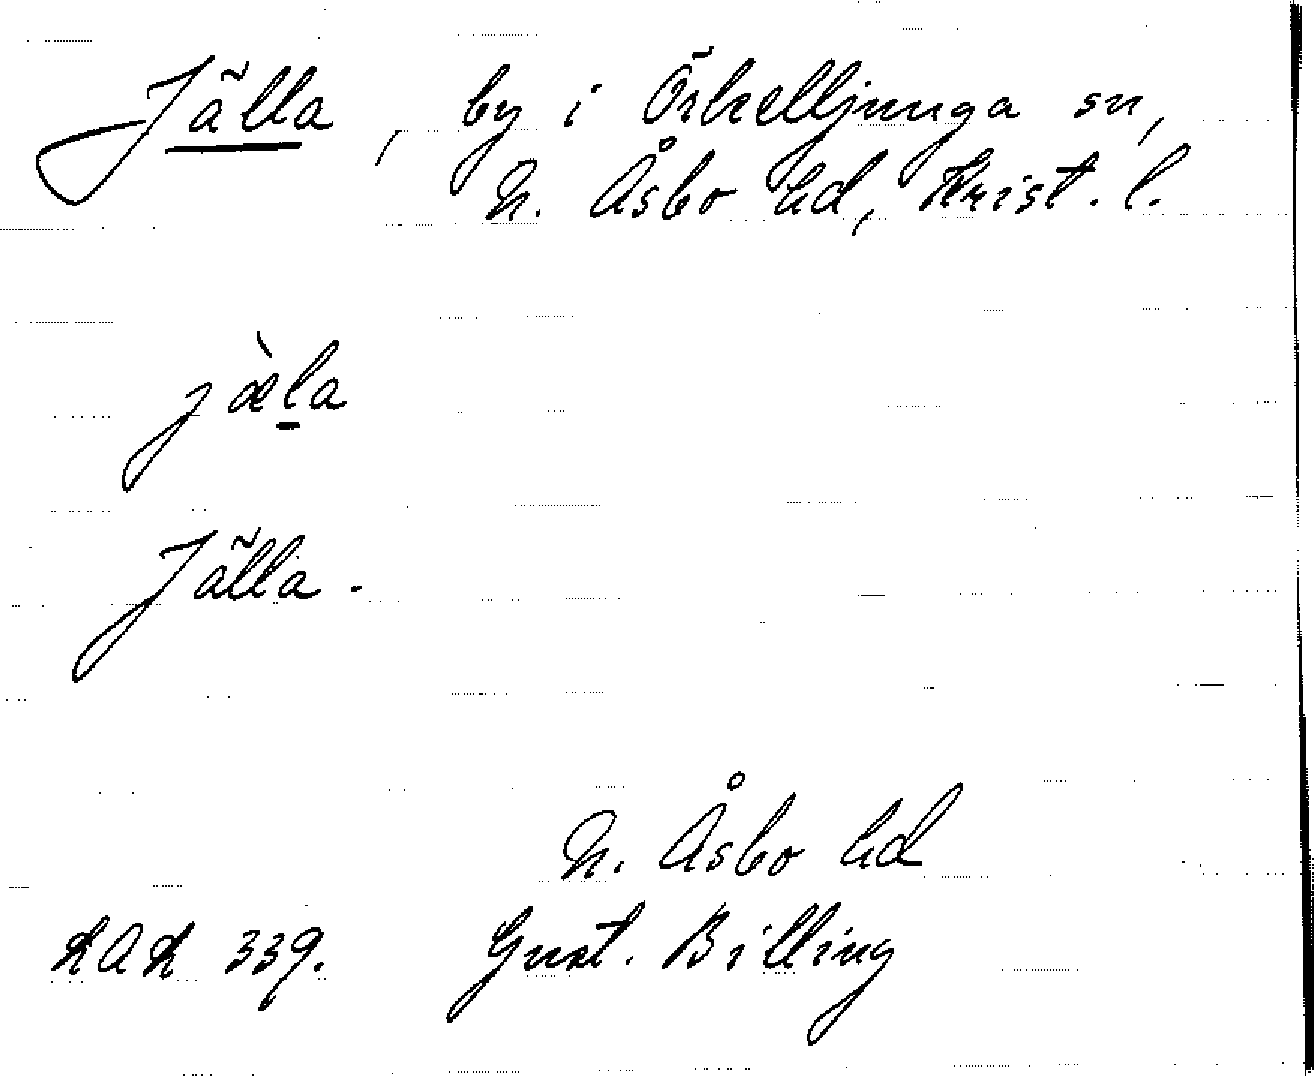 Jälla, by i Örkelljunga sn,
N. Åsbo hd, Krist. l.
jæ̀la
Jälla.
N. Åsbo hd
LAL 339. Gust. Billing